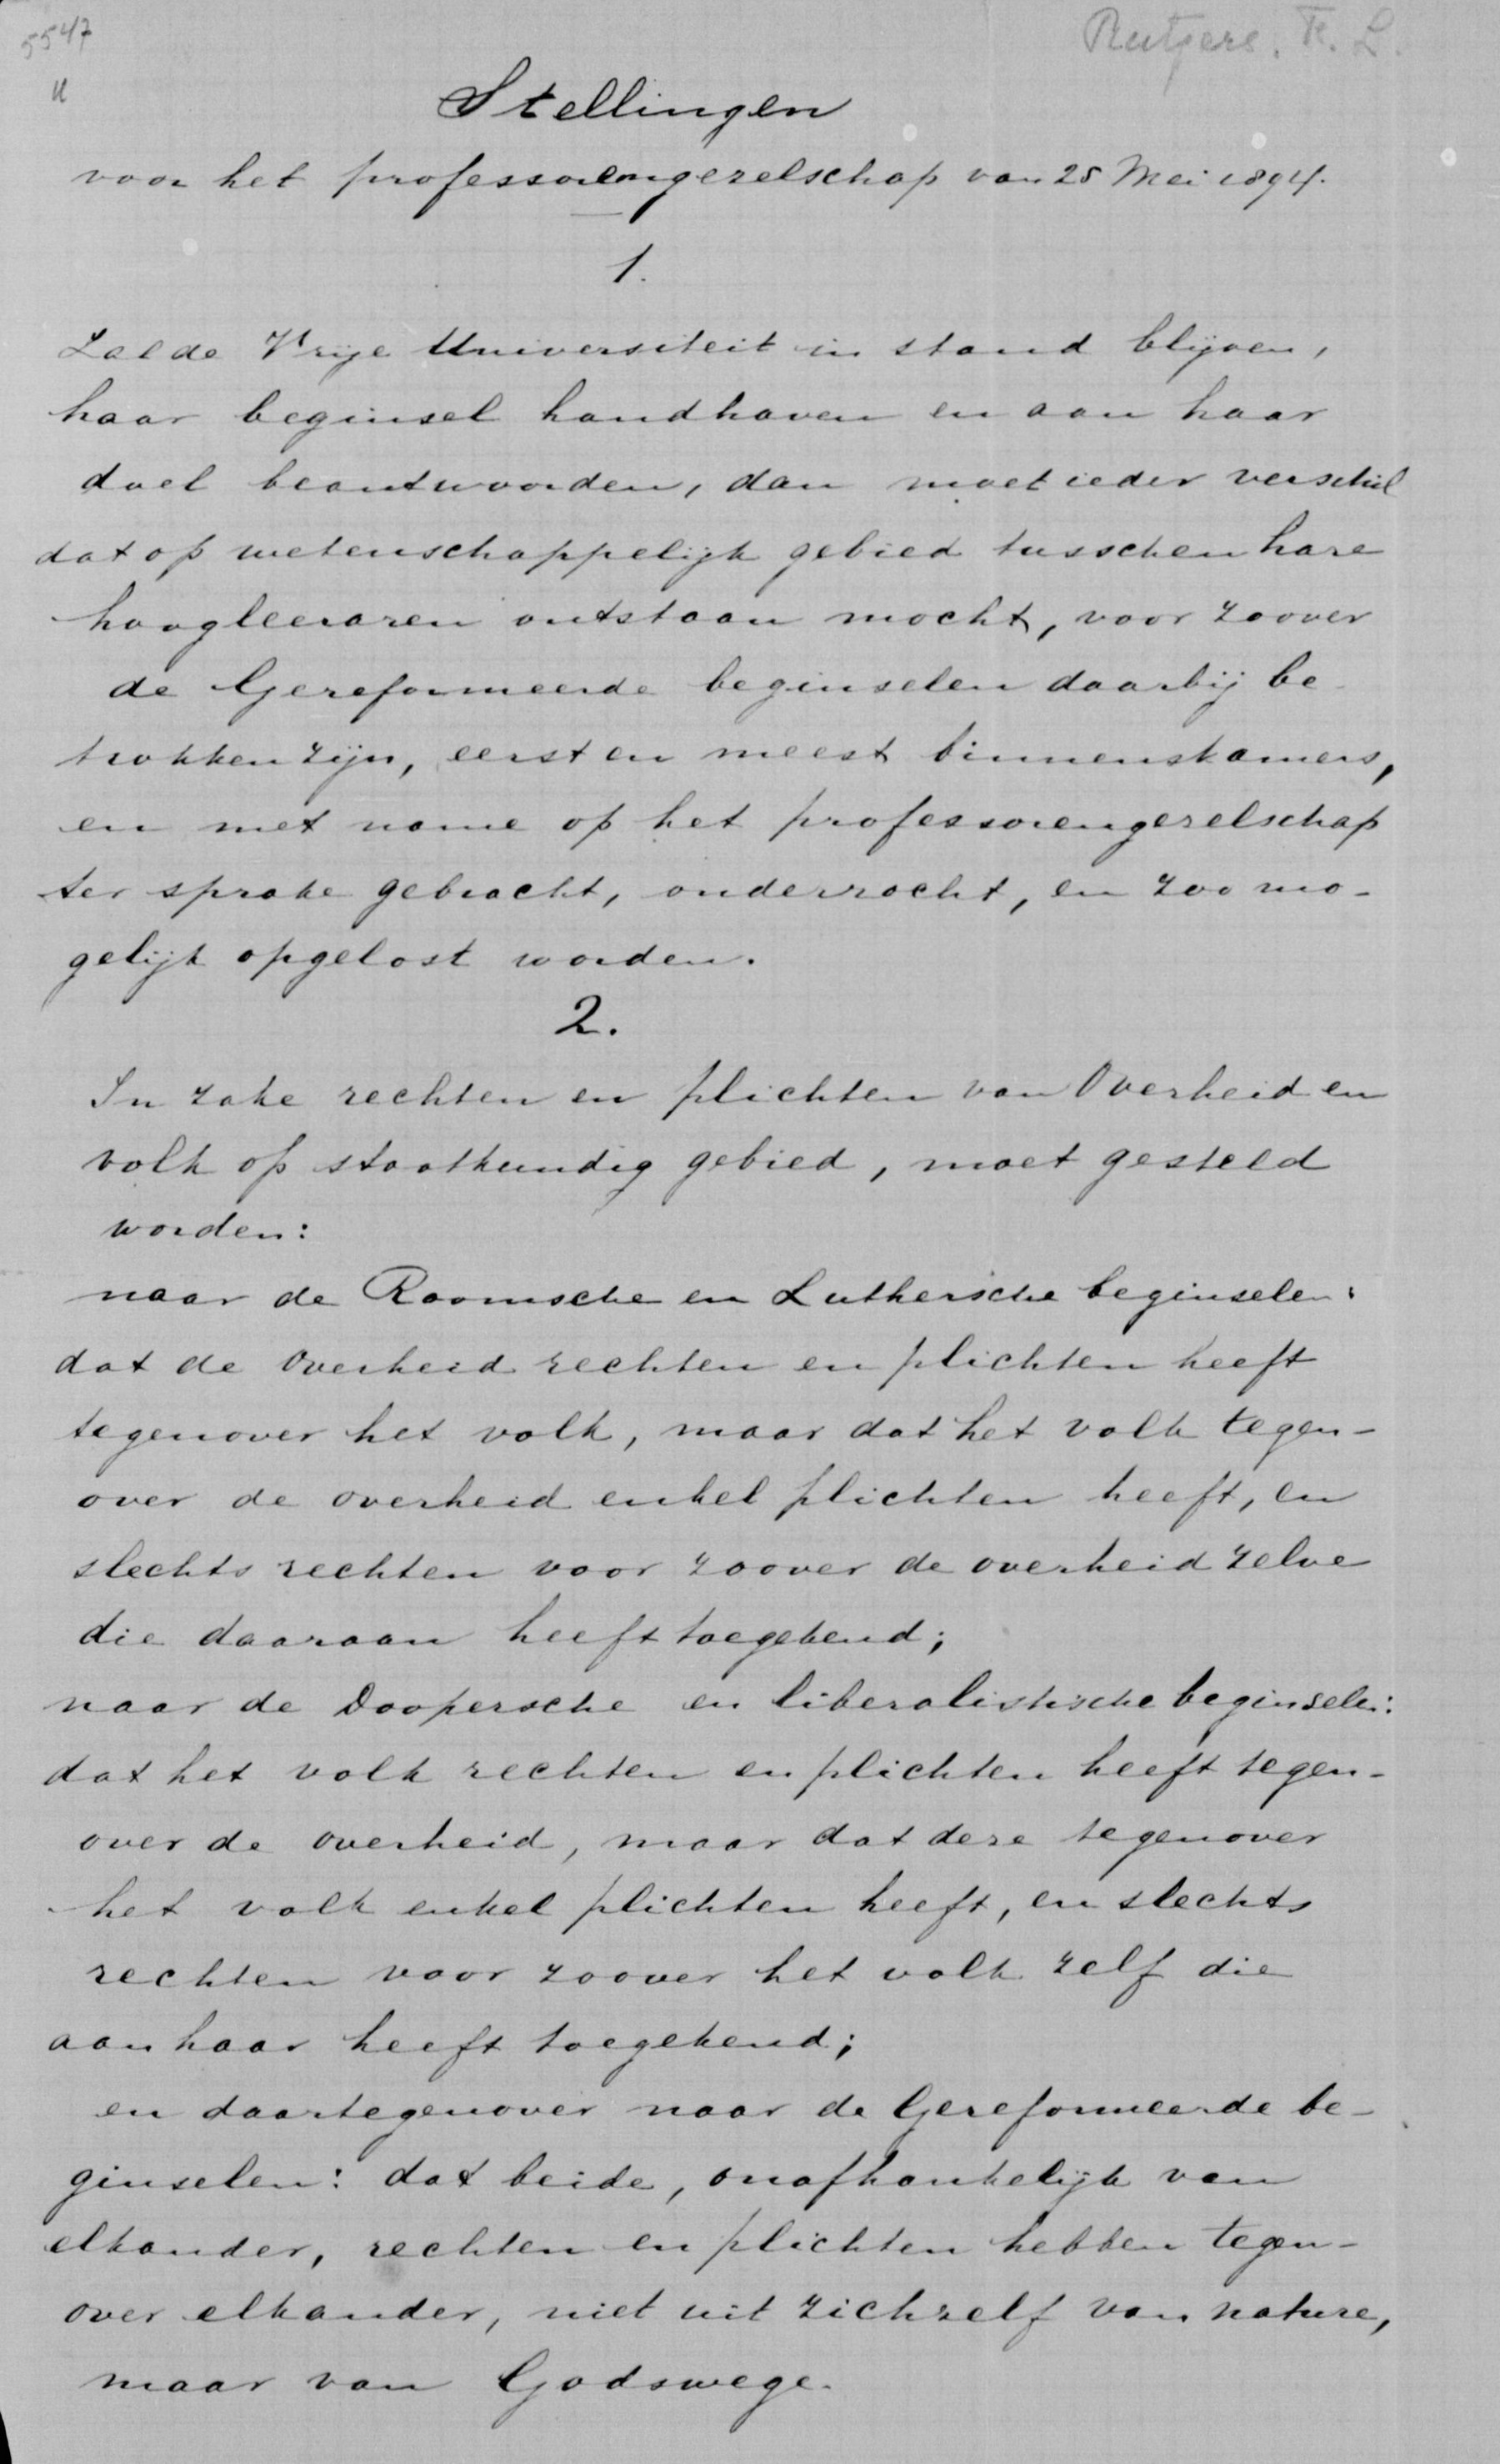 5547
Rutgers, F. L.
Stellingen
voor het professorengezelschap van 25 Mei 1894.
1.
Zal de Vrije Universiteit in stand blijven,
haar beginsel handhaven en aan haar
doel beantwoorden, dan moet ieder verschil
dat op wetenschappelijk gebied tusschen hare
hoogleeraren ontstaan mocht, voor zoover
de Gereformeerde beginselen daarbij be-
trokken zijn, eerst en meest binnenskamers,
en met name op het professorengezelschap
ter sprake gebracht, onderzocht, en zoo mo-
gelijk opgelost worden.
2.
In zake rechten en plichten van Overheid en
volk op staatkundig gebied, moet gesteld
worden:
naar de Roomsche en Luthersche beginselen:
dat de Overheid rechten en plichten heeft
tegenover het volk, maar dat het volk tegen-
over de overheid enkel plichten heeft, en
slechts rechten voor zoover de overheid zelve
die daaraan heeft toegekend;
naar de Doopersche en liberalistische beginselen:
dat het volk rechten en plichten heeft tegen-
over de overheid, maar dat deze tegenover
het volk enkel plichten heeft, en slechts
rechten voor zoover het volk zelf die
aan haar heeft toegekend;
en daartegenover naar de Gereformeerde be-
ginselen: dat beide, onafhankelijk van
elkander, rechten en plichten hebben tegen-
over elkander, niet uit zichzelf van nature,
maar van Godswege.